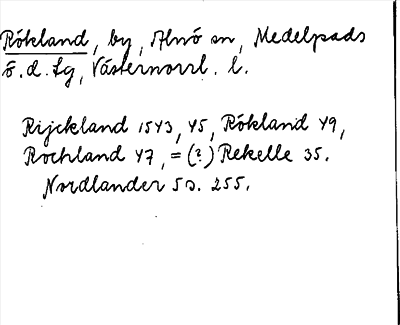 Rökland, by, Alnö sn, Medelpads
ö. d. tg, Västernorrl. l.
Rijckland 1543, 45, Rökland 49,
Rochland 47, = (?) Rekelle 35.
Nordlander so. 255.